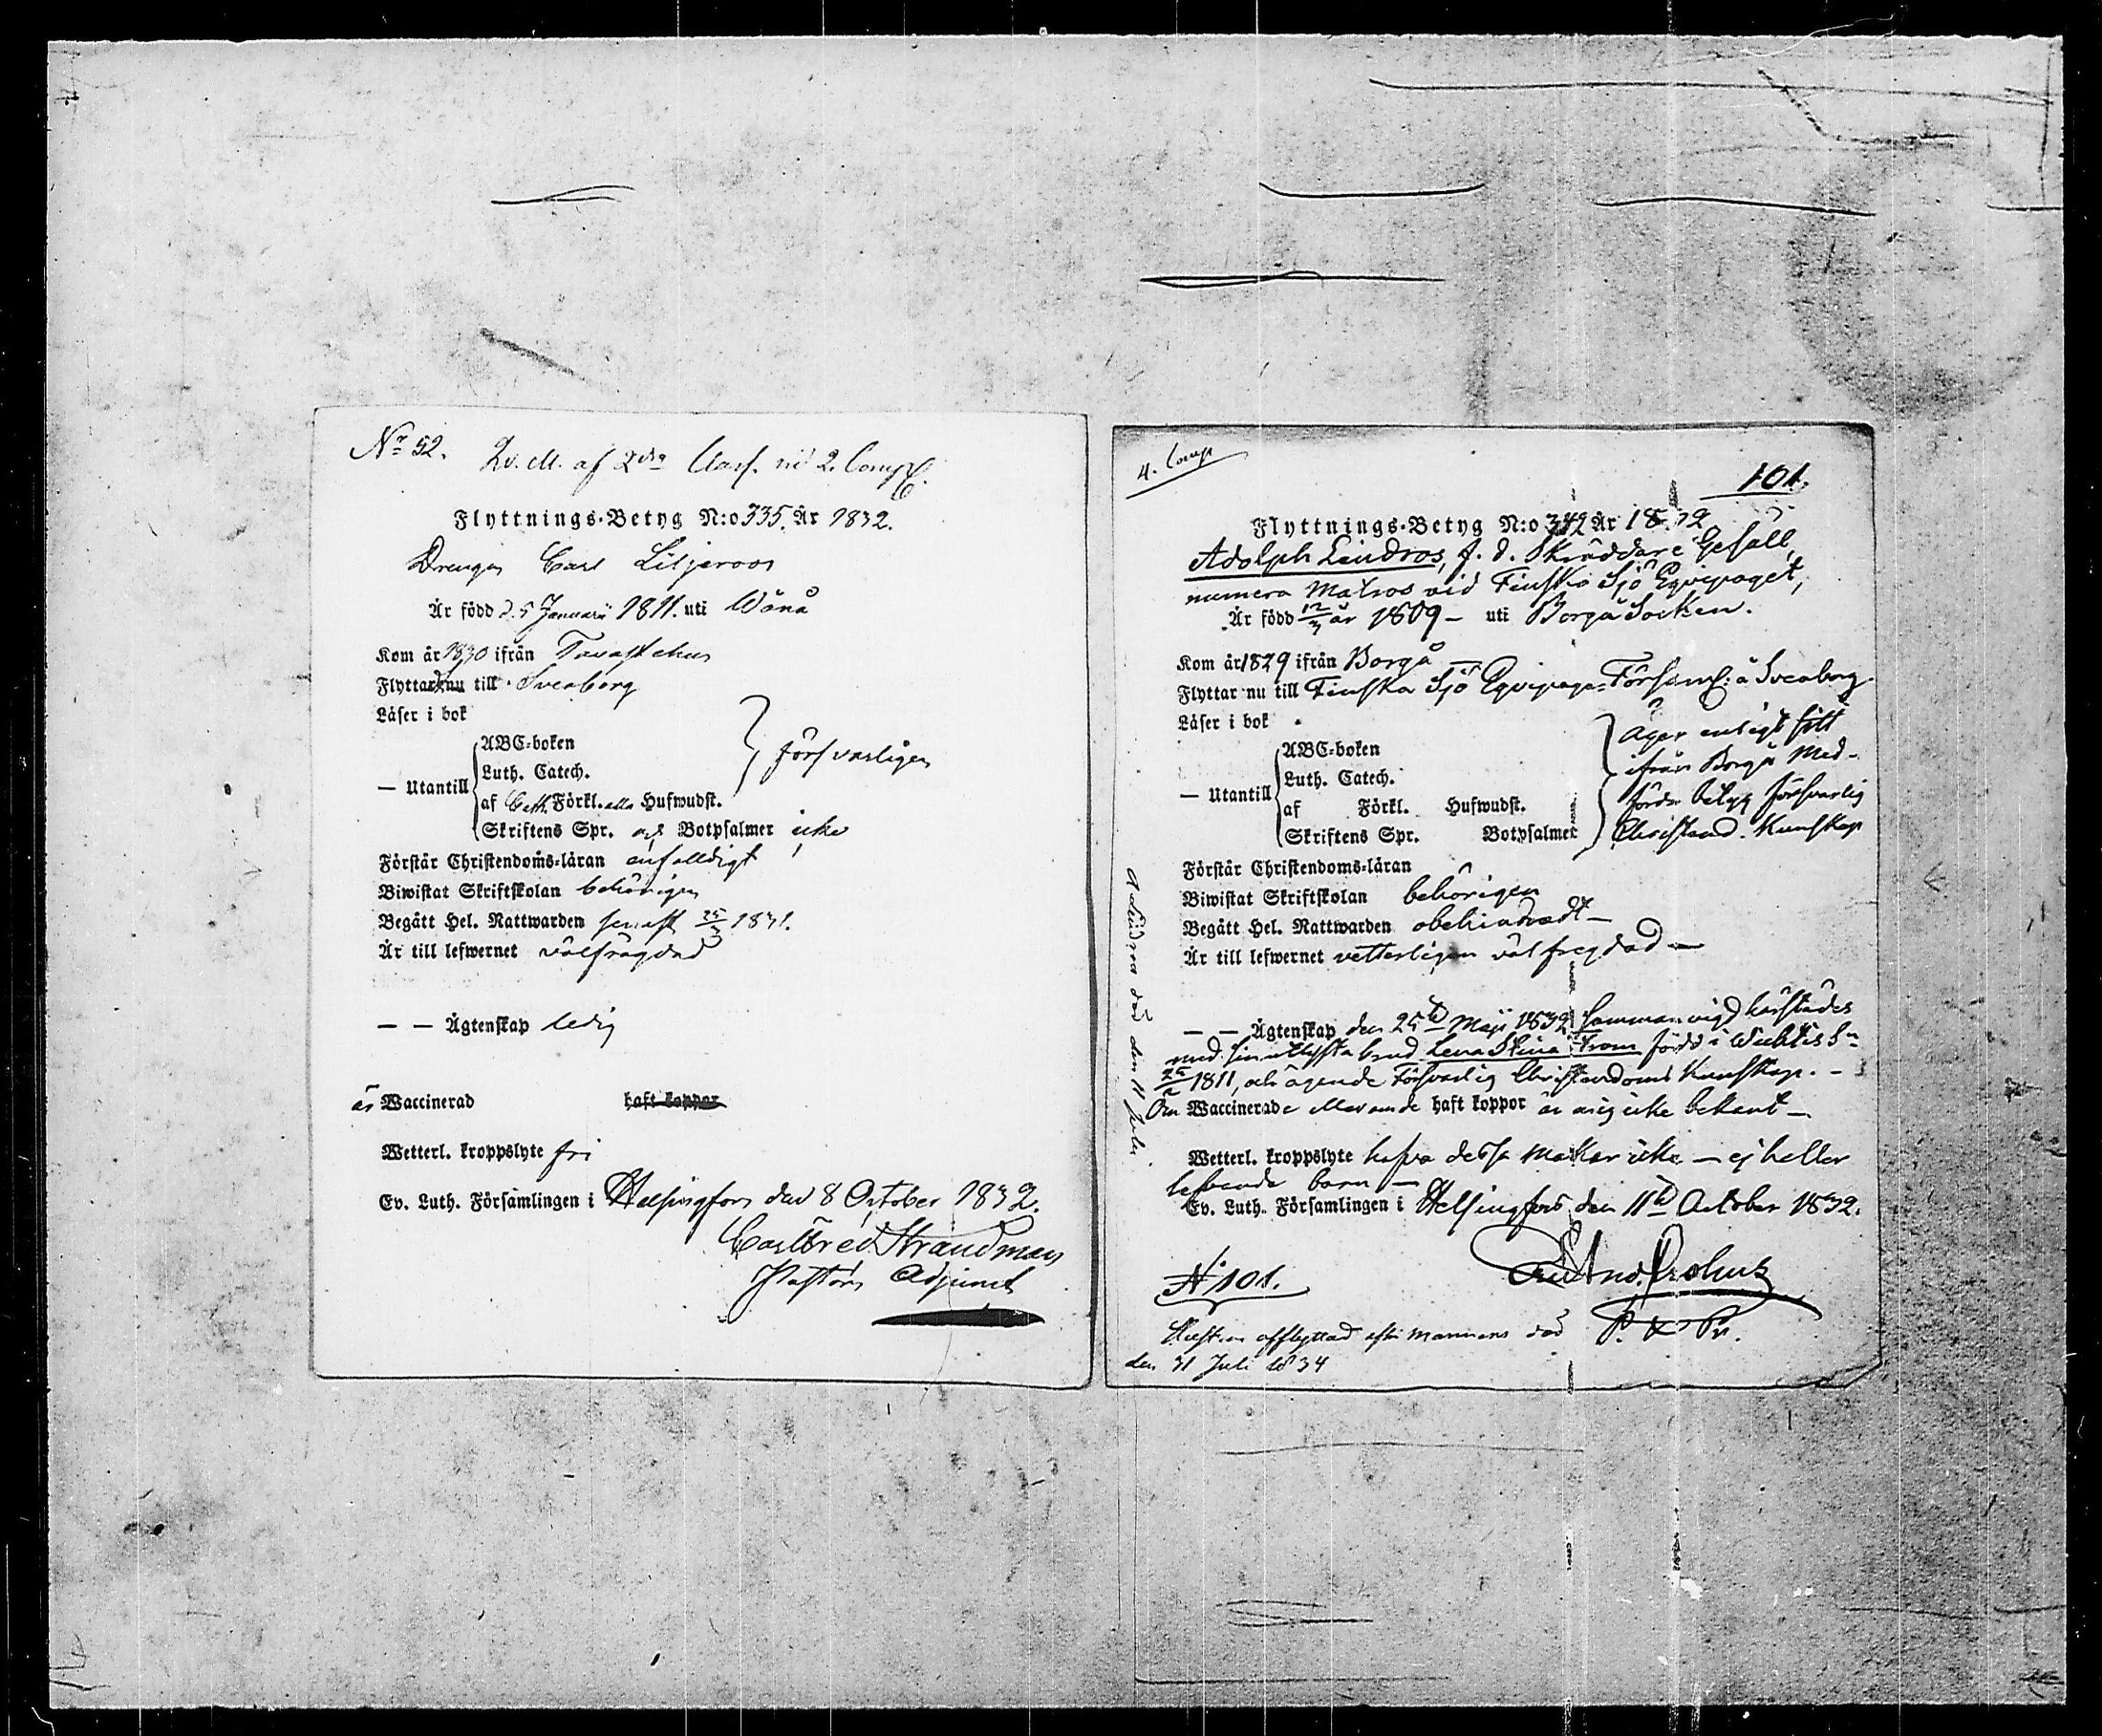 No 52. Qv. M. af 2dra Class. vid 2. Comp.
Flyttnings-Betyg N:o 335. År 1832.
Drengen Carl Liljeroos
Är född d. 5 Januarii 1811. uti Wånå
Kom år 1830 ifrån Tavastehus
Flyttar nu till Sveaborg
Läser i bok
— Utantill
ABC-boken
Luth. Catech.
af Förkl. alla Hufwudst.
Skriftens Spr. och Botpsalmer icke
försvarligen
Förstår Christendoms-läran enfalldigt
Biwistat Skriftskolan behörigen
Begått Hel. Nattwarden senast 25/3 1831.
Är till lefwernet välfrägdad
— — Ägtenskap ledig
är Waccinerad haft koppor
Wetterl. kroppslyte fri
Ev. Luth. Församlingen i Helsingfors den 8 October 1832.
Carl Fred Strandman
Pastors Adjunct
4. Comp
101.
Flyttnings-Betyg N:o 342 År 1832
Adolph Lindros, f. d. Skräddare Gesäll,
numera Matros vid Finska Sjö Eqvipaget,
Är född 12/3 år 1809 — uti Borgå Socken.
Kom år 1829 ifrån Borgå —
Flyttar nu till Finska Sjö Eqvipage-Förseml: å Sveaborg.
Läser i bok
— Utantill
ABC-boken
Luth. Catech.
af Förkl. Hufwudst.
Skriftens Spr. Botpsalmer
Äger enligt sitt
ifrån Borgå Med-
förda betyg försvarlig
Christend. Kunskap
Förstår Christendoms-läran
Biwistat Skriftskolan behörigen
Begått Hel. Nattwarden obehindradt —
Är till lefwernet vetterligen välfregdad —
— — Ägtenskap den 25te Maji 1832 Sammanvigd härstädes
med sin utlysta brud Lena Stina född i Wichtis Sn
1811, och ägende Försvarlig Christendoms Kunskap. —
Om Waccinerade eller annde haft koppor är mig icke bekant —
Wetterl. kroppslyte hafva dessa Makar icke — ej heller
lefvande barn —
Ev. Luth. Församlingen i Helsingfors, den 11te October 1832.
N 101.
P. & Pr.
Hustrun afflyttad efter mannens död
den 31 Juli 1834
A Lindros död den 11 Julii.